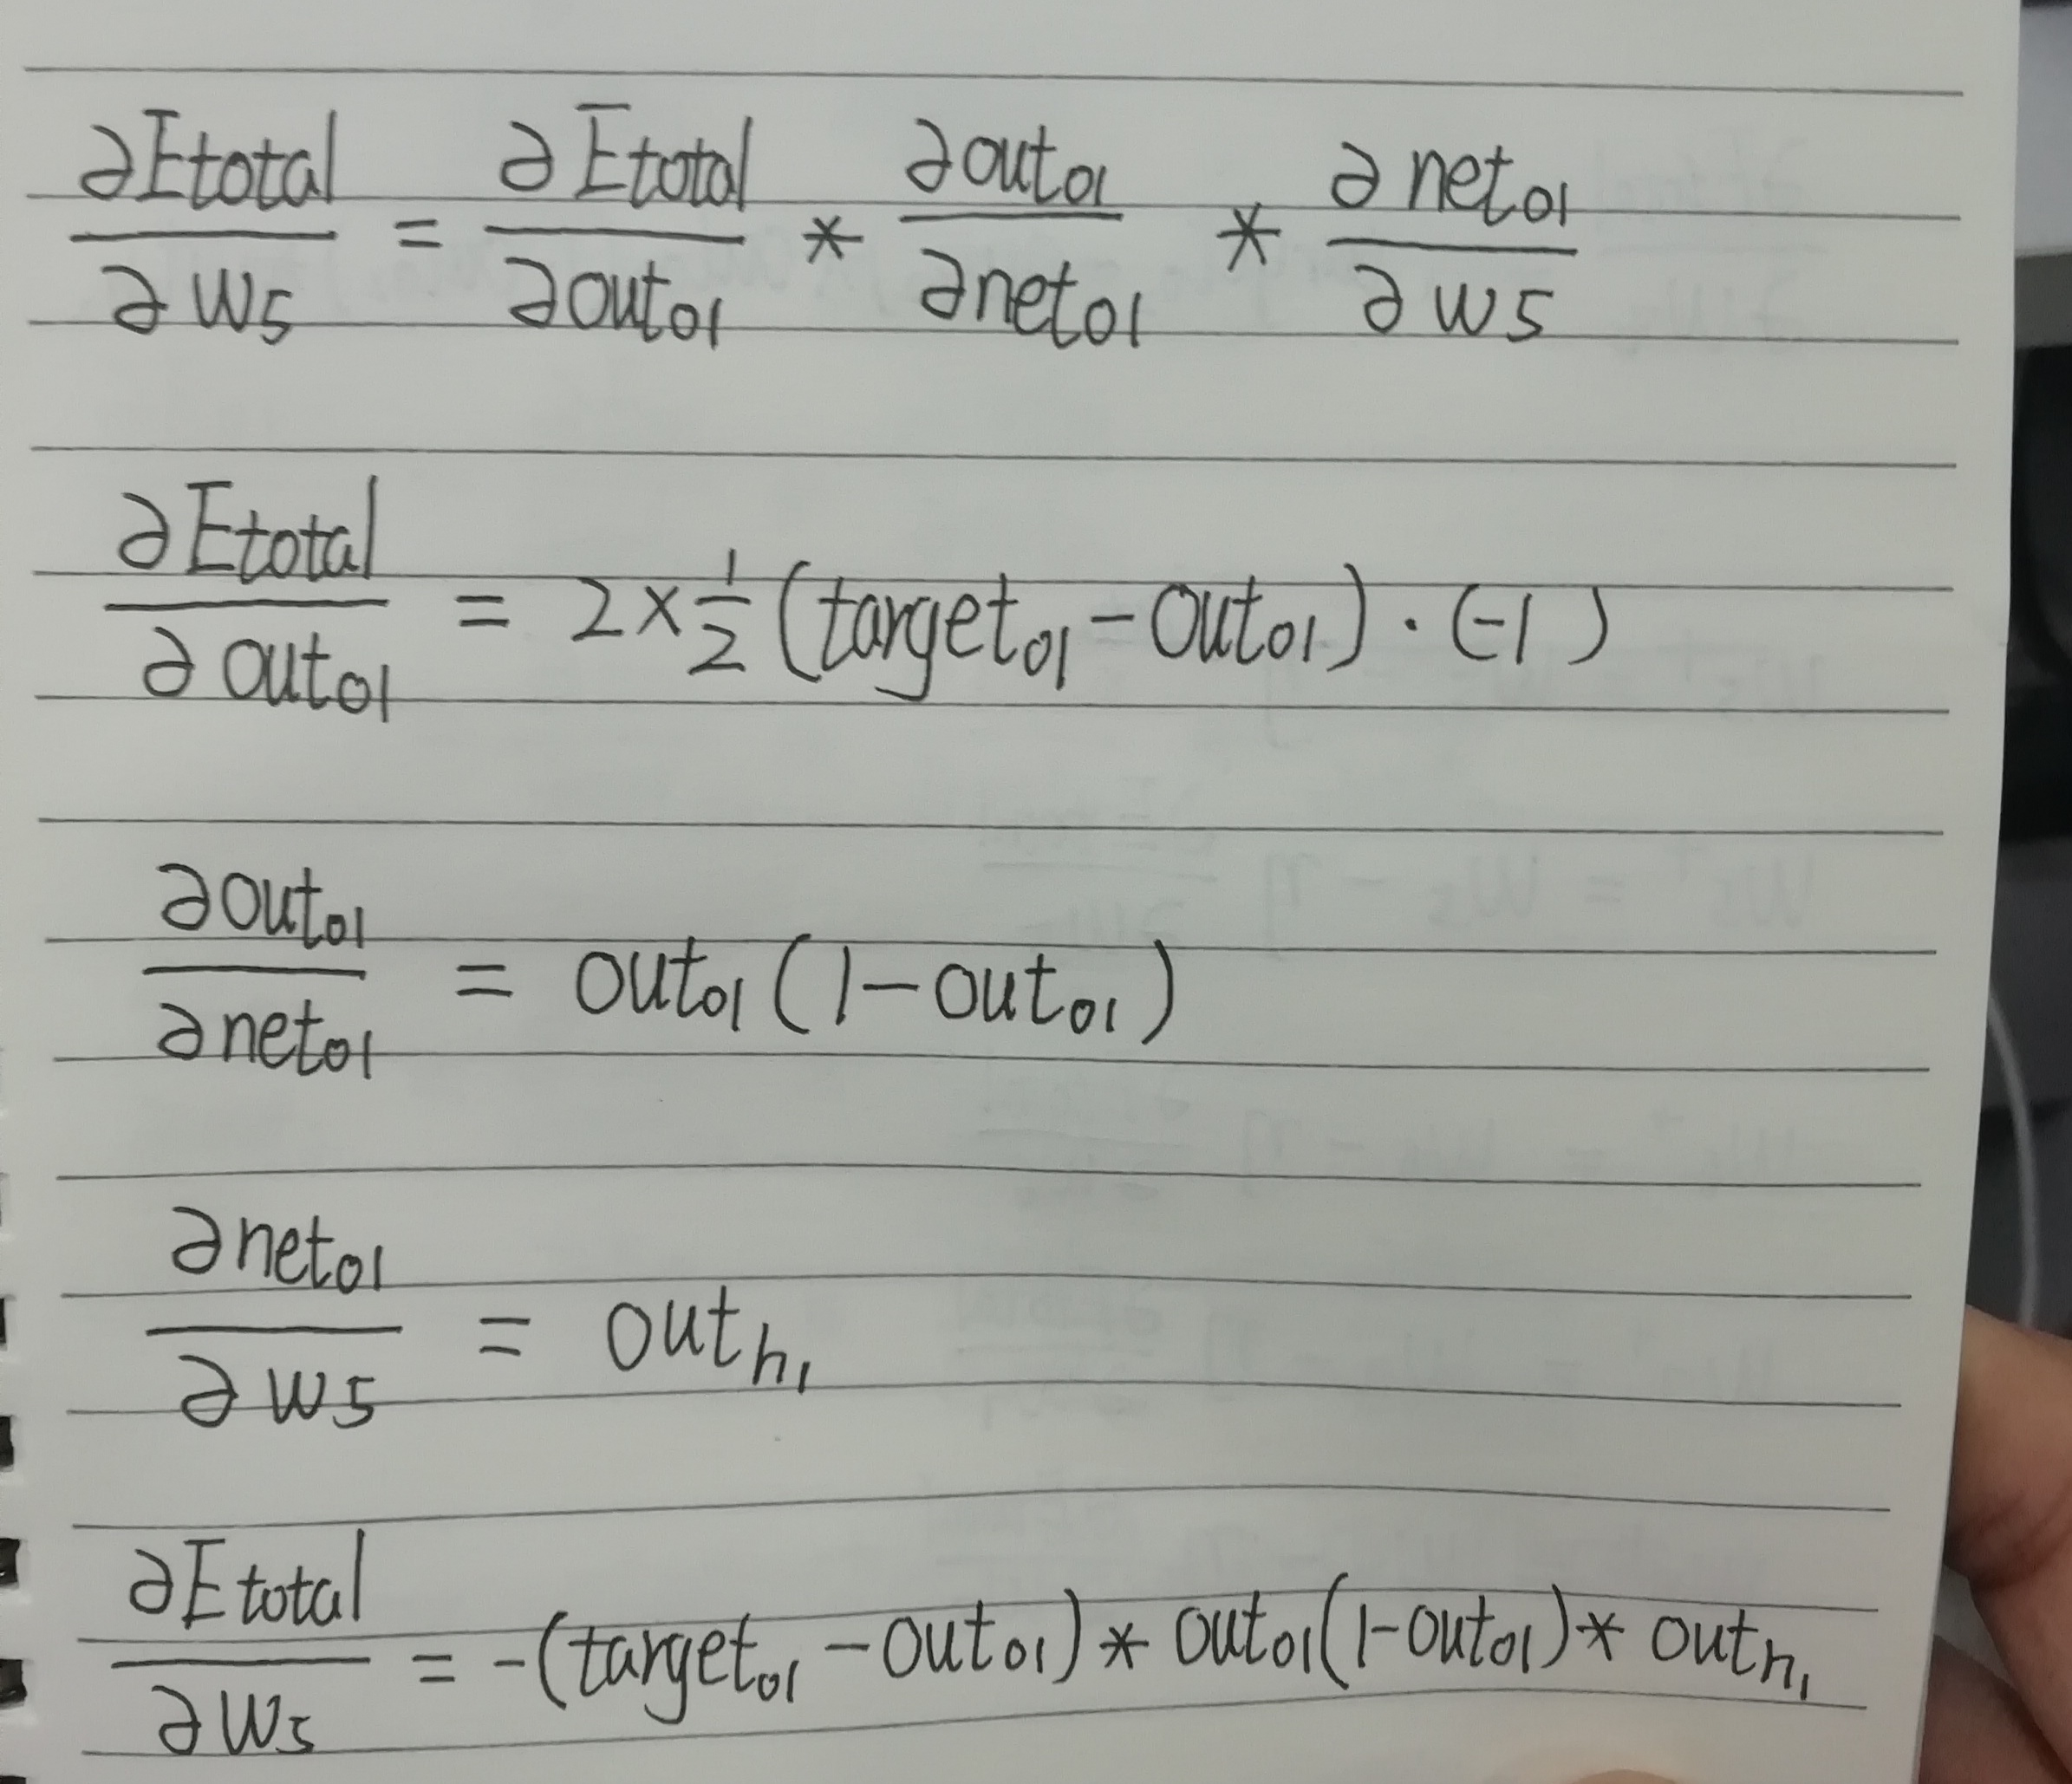 ∂Etotal/∂w5 = ∂Etotal/∂outo1 * ∂outo1/∂neto1 * ∂neto1/∂w5
∂Etotal/∂outo1 = 2×1/2(targeto1-outo1)·(-1)
∂outo1/∂neto1 = outo1(1-outo1)
∂neto1/∂w5 = outh1
∂Etotal/∂w5 = -(targeto1-outo1)*outo1(1-outo1)*outh1